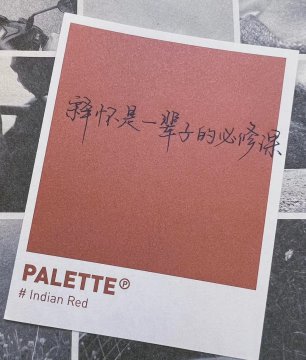 释怀是一辈子的必修课
PALETTE Ⓟ
# Indian Red